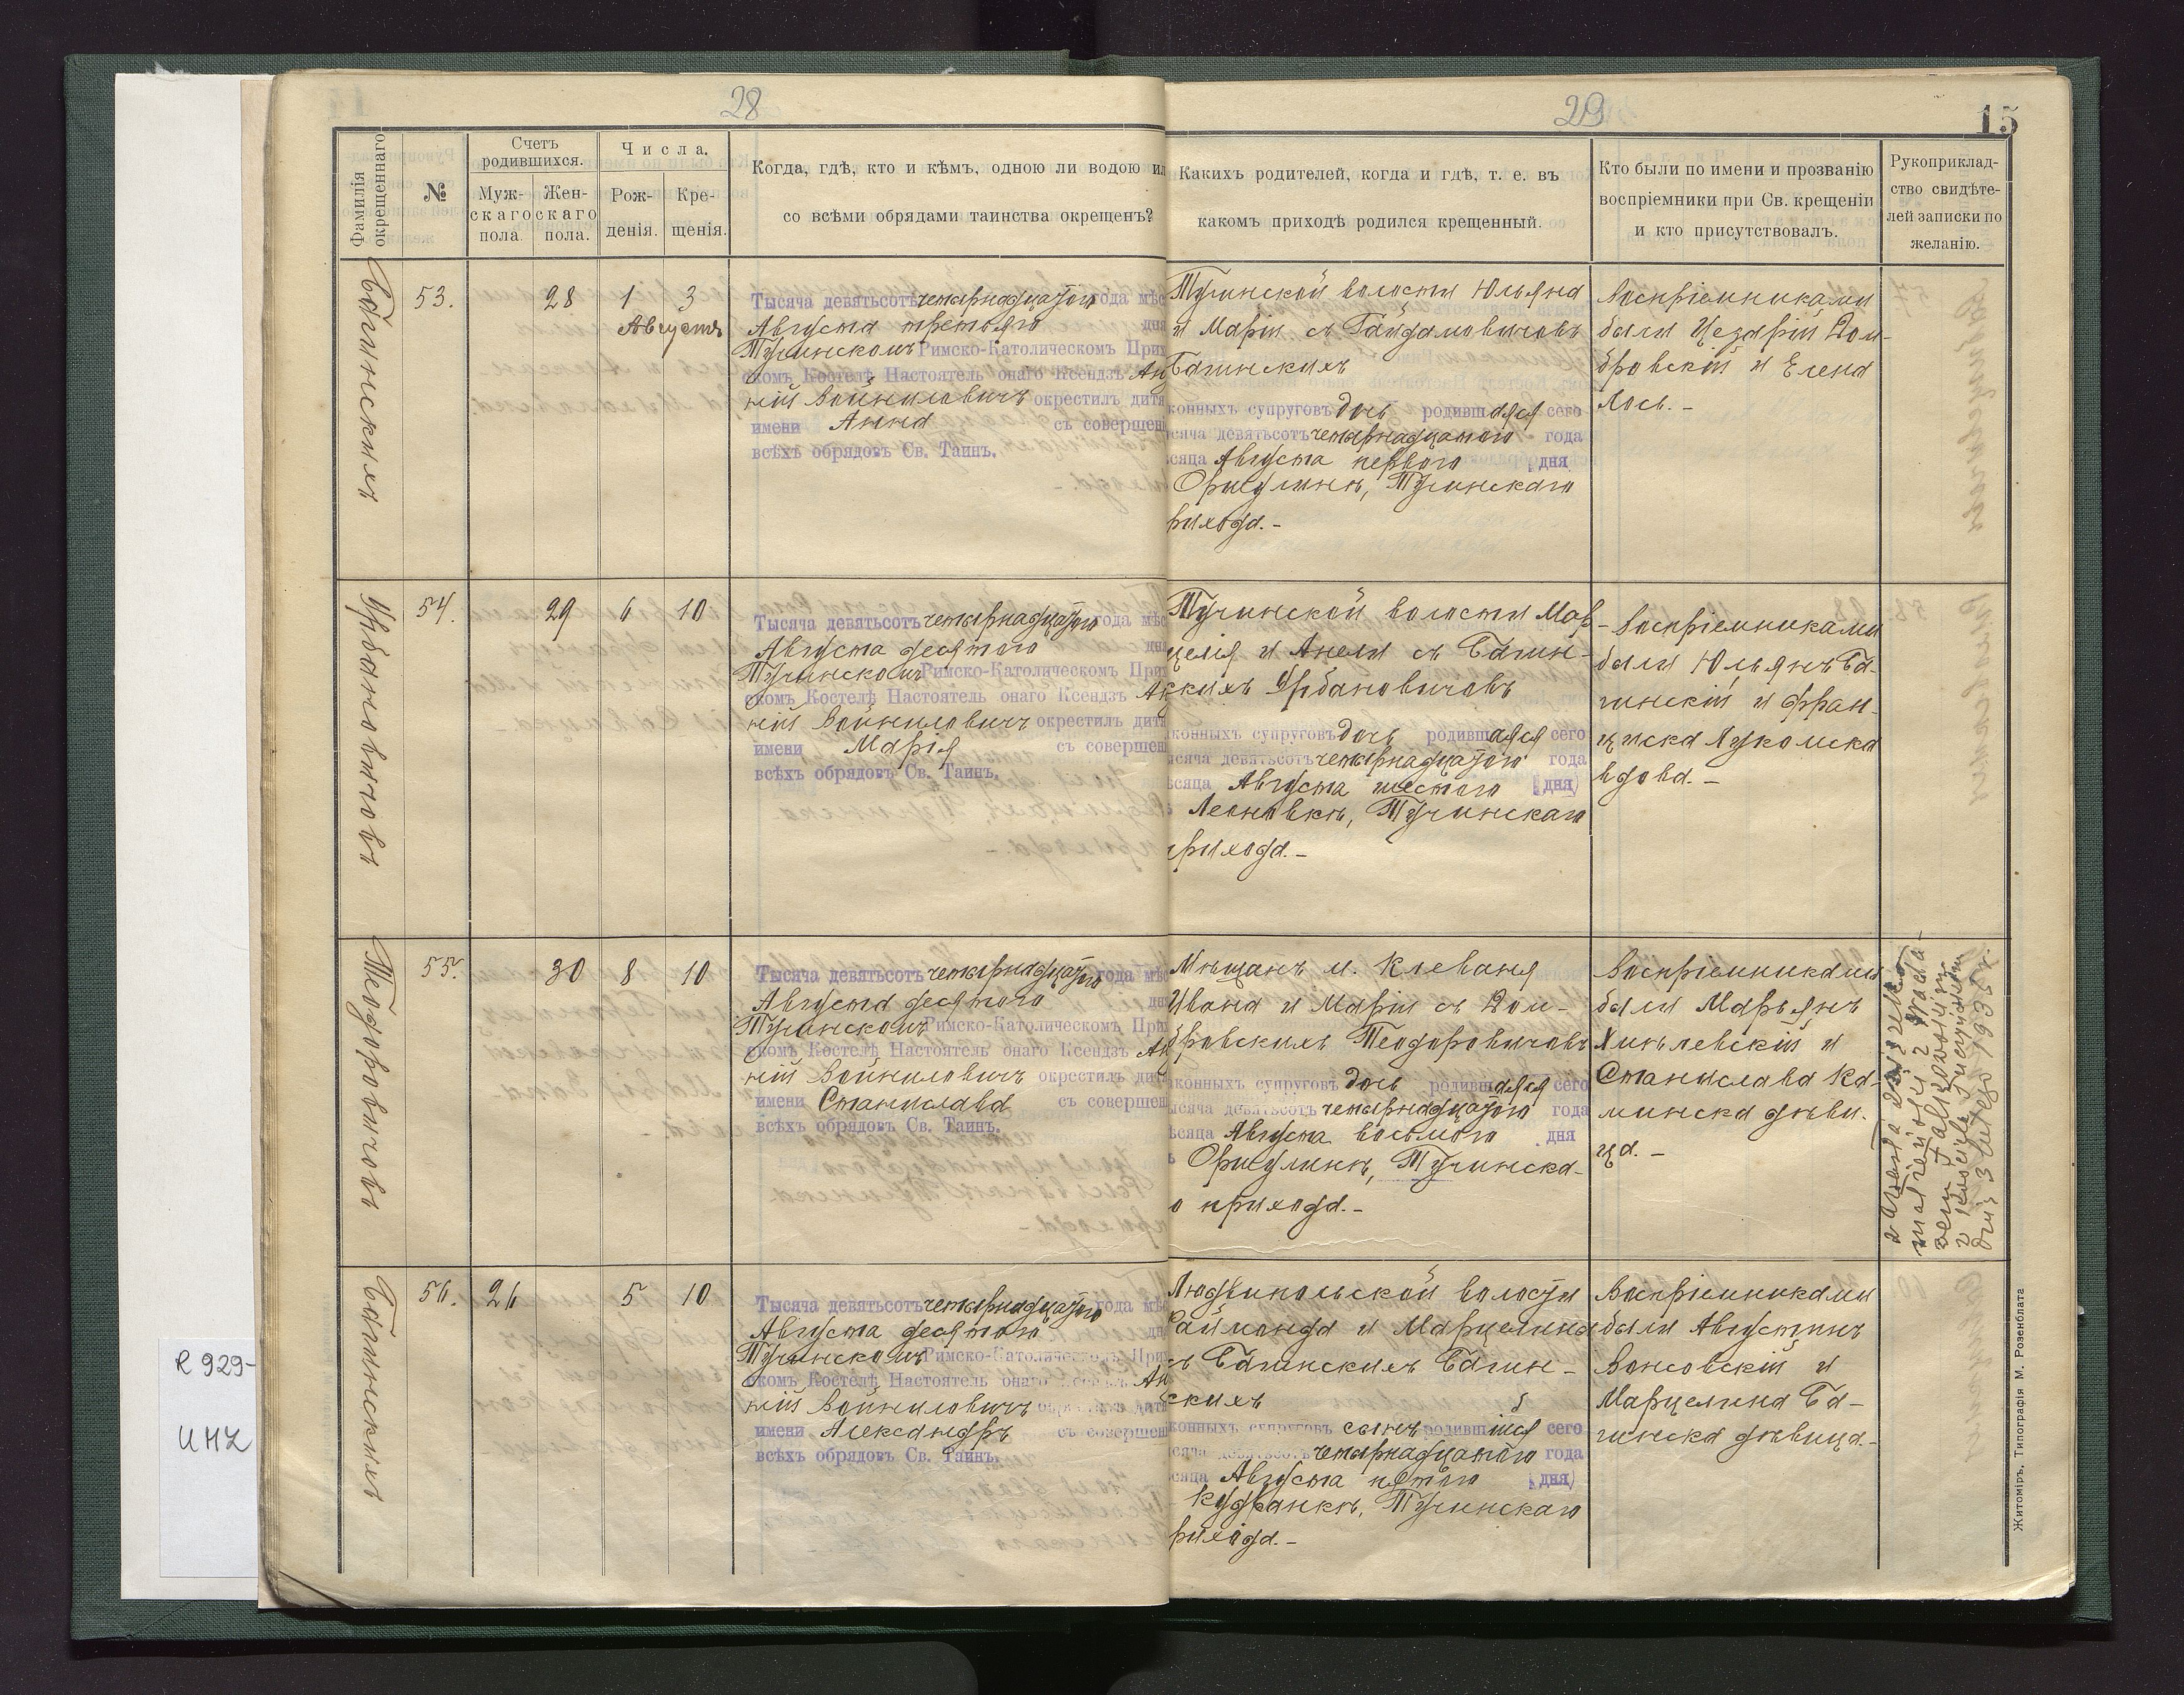 28
29
15
Фамилія окрещеннаго.
№
Счетъ родившихся.
Муж-скаго пола.
Жен-скаго пола.
Числа.
Рож-денія.
Кре-щенія.
Когда, гдѣ, кто и кѣмъ, одною ли водою ил
со всѣми обрядами таинства окрещенъ?
Какихъ родителей, когда и гдѣ, т. е. въ
какомъ приходѣ родился крещенный.
Кто были по имени и прозванію
воспріемники при Св. крещеніи
и кто присутствовалъ.
Рукоприклад-
ство свидѣте-
лей записки по
желанію.
Багинскихъ
53.
28
1
3
Августъ
Тысяча девятьсотъ четырнадцатого года мѣс
Августа третьяго дня
Тучинскомъ Римско-Католическомъ Прих
скомъ Костелѣ Настоятель онаго Ксендзъ Ан
ній Войниловичъ окрестилъ дитя
имени Анна съ совершен
всѣхъ обрядовъ Св. Таинъ.
Тучинской волости Юльяна
и Маріи съ Гайдамовичовъ
Багинскихъ
конныхъ супруговъ дочь родившаяся сего
ысяча девятьсотъ четырнадцатого года
ѣсяца Августа первого дня
Оржулинѣ, Тучинскаго
рихода.-
Воспріемниками
были Цезарій Дом-
бровскій и Елена
Лось.-
Урбановичовъ
54.
29
6
10
Тысяча девятьсотъ четырнадцатого года мѣс
Августа десятого дня
Тучинскомъ Римско-Католическомъ Прих
скомъ Костелѣ Настоятель онаго Ксендзъ Ан
ній Войниловичъ окрестилъ дитя
имени Марія съ совершен
всѣхъ обрядовъ Св. Таинъ.
Тучинской волости Мар-
целія и Анели съ Багин-
скихъ Урбановичовъ
конныхъ супруговъ дочь родившаяся сего
ысяча девятьсотъ четырнадцатого года
ѣсяца Августа шестого дня
Леоновкѣ, Тучинскаго
рихода.-
Воспріемниками
были Юльянъ Ба-
гинскій и Фран-
циска Лукомска
вдова.-
Теодоровичовъ
55.
30
8
10
Тысяча девятьсотъ четырнадцатого года мѣс
Августа десятого дня
Тучинскомъ Римско-Католическомъ При
скомъ Костелѣ Настоятель онаго Ксендзъ Ан
ній Войниловичъ окрестилъ дитя
имени Станислава съ совершен
всѣхъ обрядовъ Св. Таинъ.
Мѣщанъ м. Клеваня
Ивана и Маріи съ Дом-
бровскихъ Теодоровичовъ
конныхъ супруговъ дочь родившаяся сего
ысяча девятьсотъ четырнадцатого года
ѣсяца Августа восьмого дня
Оржулинѣ, Тучинска-
о прихода.-
Воспріемниками
были Марьянъ
Хмѣлевскій и
Станислава Ка-
минска дѣви-
ца.-
w kościele
dniu 3 lutego 1935 r.
Багинскихъ
56.
26
5
10
Тысяча девятьсотъ четырнадцатого года мѣс
Августа десятого дня
Тучинскомъ Римско-Католическомъ При
скомъ Костелѣ Настоятель онаго Ксендзъ Ан
ній Войниловичъ окрестилъ дитя
имени Александръ съ совершен
всѣхъ обрядовъ Св. Таинъ.
Людвипольской волости
Раймонда и Марцелины
съ Багинскихъ Багин-
скихъ
конныхъ супруговъ сынъ родившійся сего
ысяча девятьсотъ четырнадцатого года
сяца Августа пятого дня
Кудранкѣ, Тучинскаго
рихода.-
Воспріемниками
были Августинъ
Вонсовскій и
Марцелина Ба-
гинска дѣвица.-
Житоміръ, Типографія М. Розенблата
R 929-
UMZ